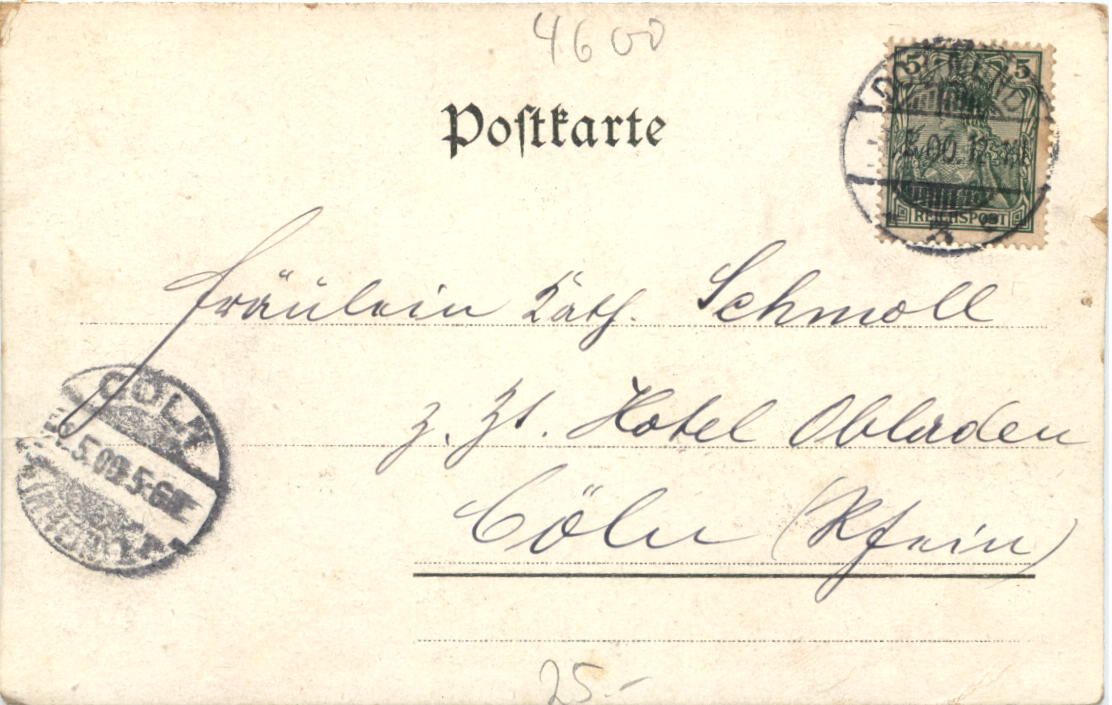 4600
Postkarte
5 5
DORTMUND
.00.12-1N
REICHSPOST
Fräulein Käth. Schmoll
z. Zt. Hotel Obladen
CÖLN
.5.00.5-6N
Cöln (Rhein)
25.-